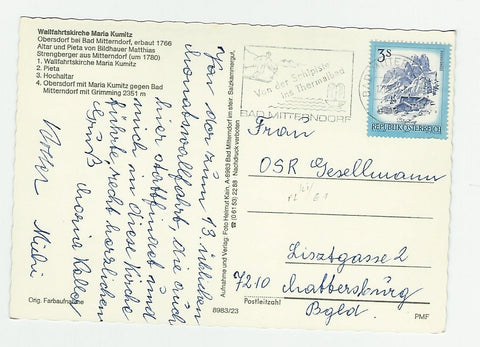 Wallfahrtskirche Maria Kumitz
Obersdorf bei Bad Mitterndorf, erbaut 1766
Altar und Pieta von Bildhauer Matthias
Strengberger aus Mitterndorf (um 1780)
1. Wallfahrtskirche Maria Kumitz
2. Pieta
3. Hochaltar
4. Obersdorf mit Maria Kumitz gegen Bad
Mitterndorf mit Grimming 2351 m
Von der zum 13. üblichen
Monatswallfahrt, die auch
hier stattfindet und
mich in diese Kirche
führte, recht herzlichen
Gruß Maria
Aufnahme und Verlag: Foto Helmut Kain, A-8983 Bad Mitterndorf im steir. Salzkammergut,
☎ (0 61 53) 22 89 Nachdruck verboten
Von der Schipiste
ins Thermalbad
BAD MITTERNDORF
3 S
REPUBLIK ÖSTERREICH
Frau
OSR Gesellmann
Lisztgasse 2
7210 Mattersburg
Bgld.
Postleitzahl
Orig. Farbaufnahme
8983/23
PMF